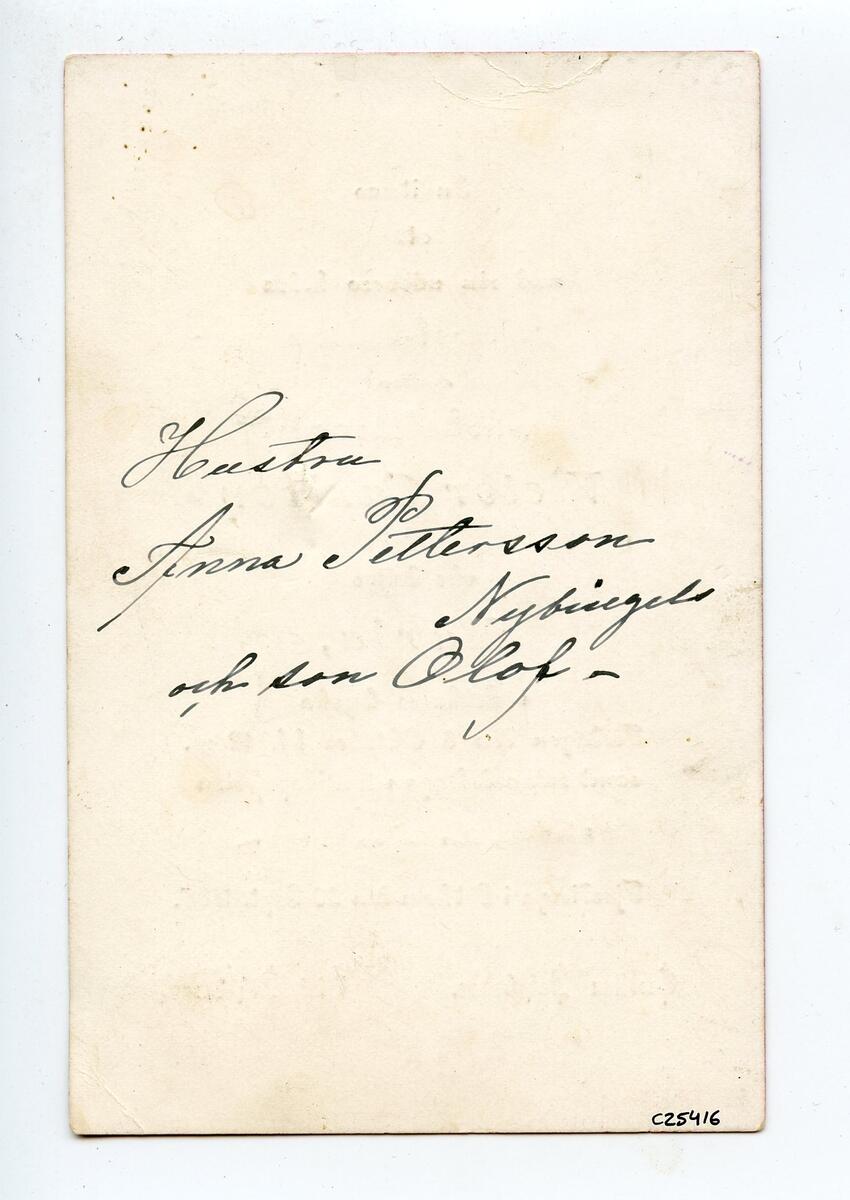 Hustru
Anna Pettersson
Nybingels
och son Olof –
C25416